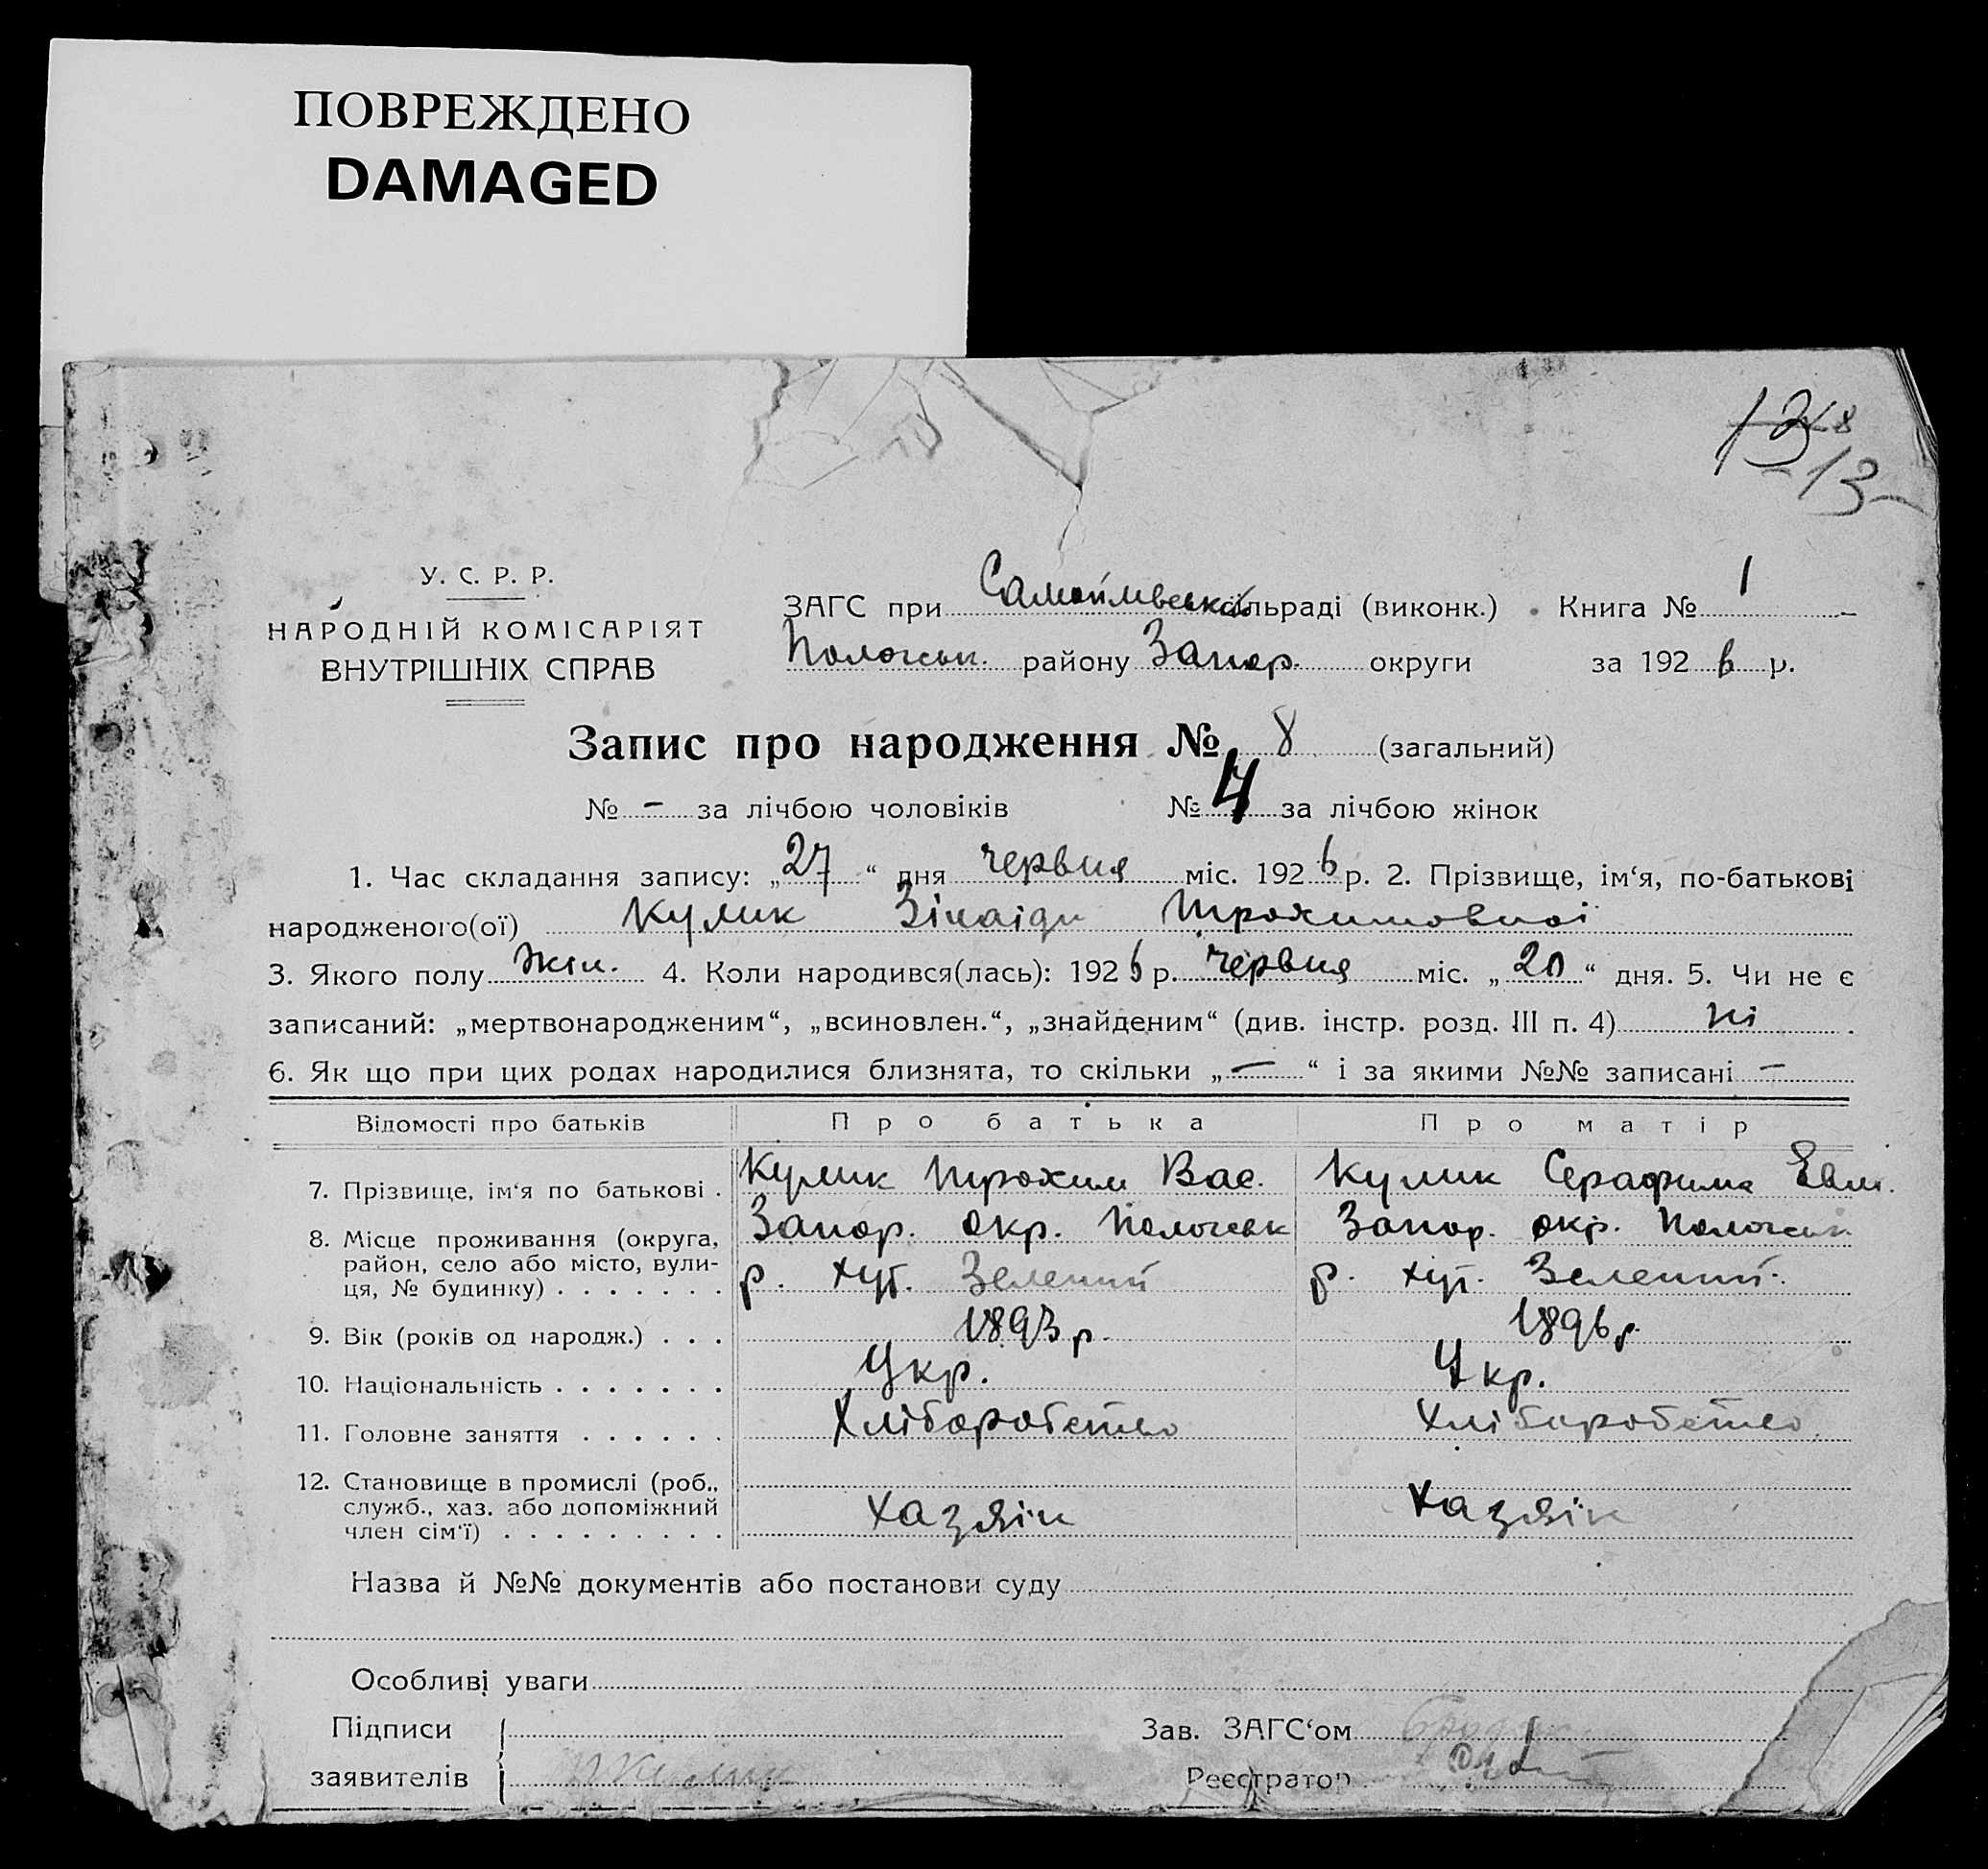 ПОВРЕЖДЕНО
DAMAGED
13
У. С. Р. Р.
НАРОДНІЙ КОМІСАРІЯТ
ВНУТРІШНІХ СПРАВ
ЗАГС при сільраді (виконк.) Книга № 1
Пологськ. району Запор. округи за 1926 р.
Запис про народження № 8 (загальний)
№ - за лічбою чоловіків № 4 за лічбою жінок
1. Час складання запису: „27“ дня червня міс. 1926 р. 2. Прізвище, ім‘я, по-батькові
народженого(ої) Кулик Зінаіди Трохимовної
3. Якого полу жін. 4. Коли народився(лась): 1926 р. червня міс. „20“ дня. 5. Чи не є
записаний: „мертвонародженим“, „всиновлен.“, „знайденим“ (див. інстр. розд. III п. 4) ні.
6. Як що при цих родах народилися близнята, то скільки „—“ і за якими №№ записані —
Відомості про батьків Про батька Про матір
7. Прізвище, ім‘я по батькові . Кулик Трохим Вас. Кулик Серафима Евм.
8. Місце проживання (округа, Запор. окр. Пологськ Запор. окр. Пологськ
район, село або місто, вули- р. хут. Зелений р. хут. Зелений.
ця, № будинку) . . . . . . .
9. Вік (років од народж.) . . . 1893 р. 1896 р.
10. Національність . . . . . . . Укр. Укр.
11. Головне заняття . . . . . . Хліборобство Хліборобство
12. Становище в промислі (роб.,
служб., хаз. або допоміжний Хазяін Хазяін
член сім‘ї) . . . . . . . . .
Назва й №№ документів або постанови суду
Особливі уваги
Підписи Зав. ЗАГС‘ом
заявителів Кулик Реєстратор